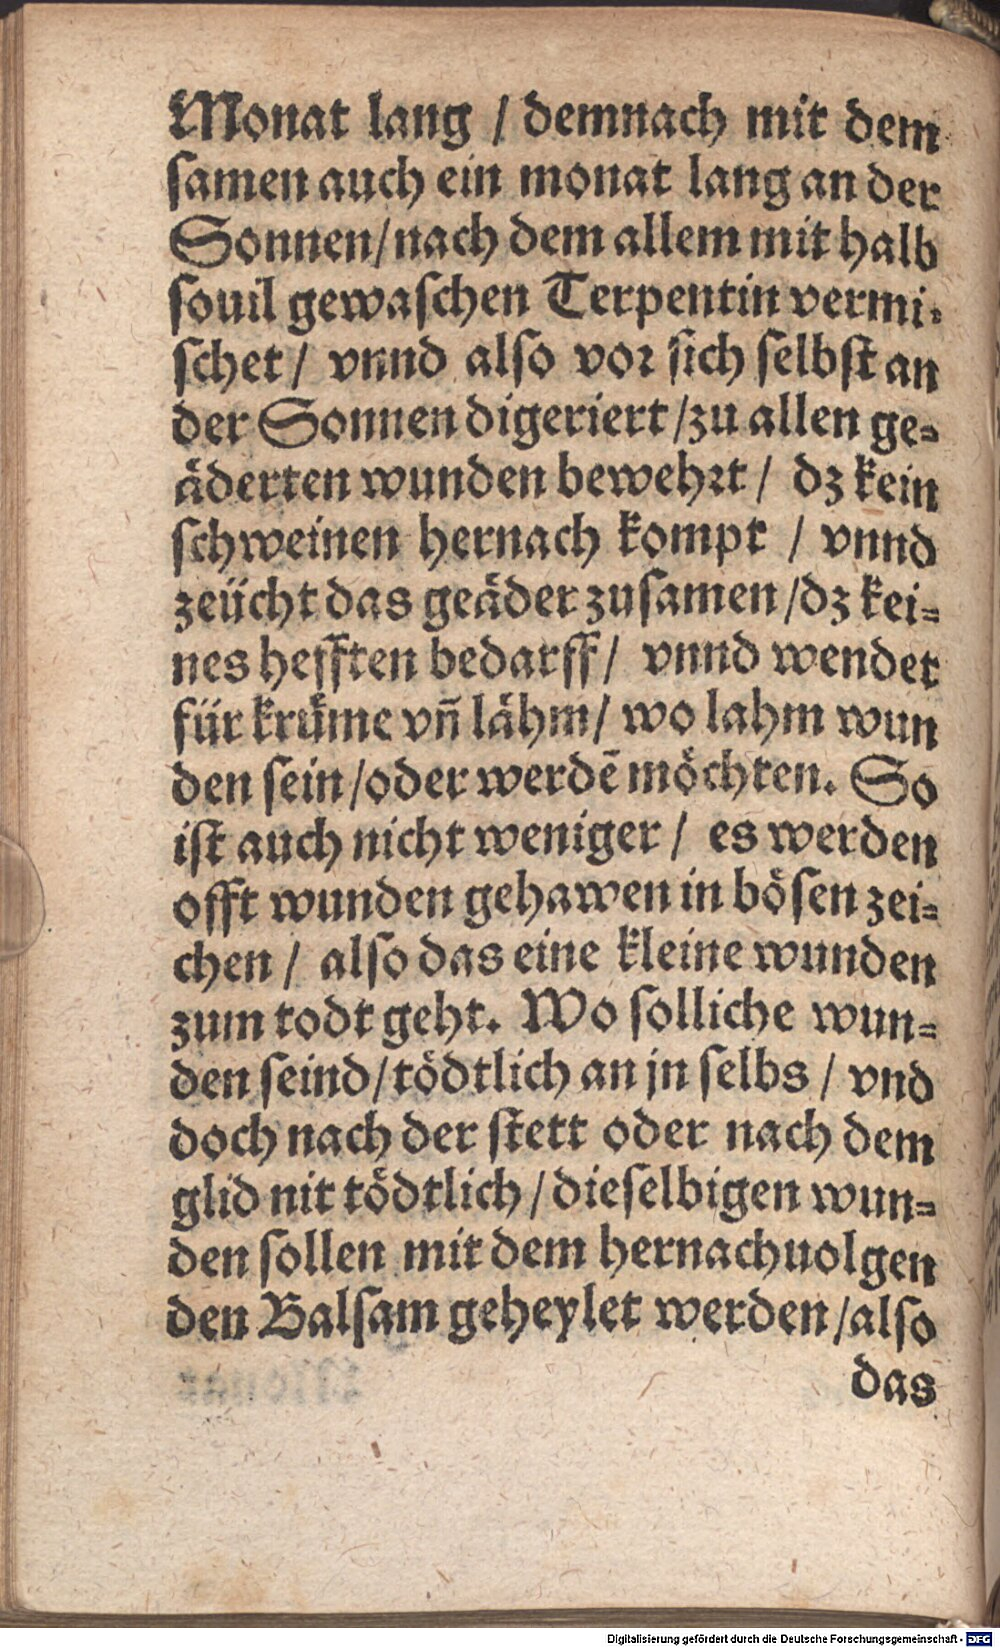 Monat lang / demnach mit dem
samen auch ein monat lang an der
Sonnen/nach dem allem mit halb
souil gewaschen Terpentin vermi-
schet/ vnnd also vor sich selbst an
der Sonnen digeriert/zu allen ge-
äderten wunden bewehrt/ dz kein
schweinen hernach kompt / vnnd
zeücht das geäder zusamen/dz kei-
nes hefften bedarff/ vnnd wendet
für krüme vñ lähm/ wo lahm wun
den sein/oder werdē möchten. So
ist auch nicht weniger/ es werden
offt wunden gehawen in bösen zei-
chen/ also das eine kleine wunden
zum todt geht. Wo solliche wun-
den seind/tödtlich an jn selbs/ vnd
doch nach der stett oder nach dem
glid nit tödtlich/dieselbigen wun-
den sollen mit dem hernachuolgen
den Balsam geheylet werden/also
das
Digitalisierung gefördert durch die Deutsche Forschungsgemeinschaft - DFG